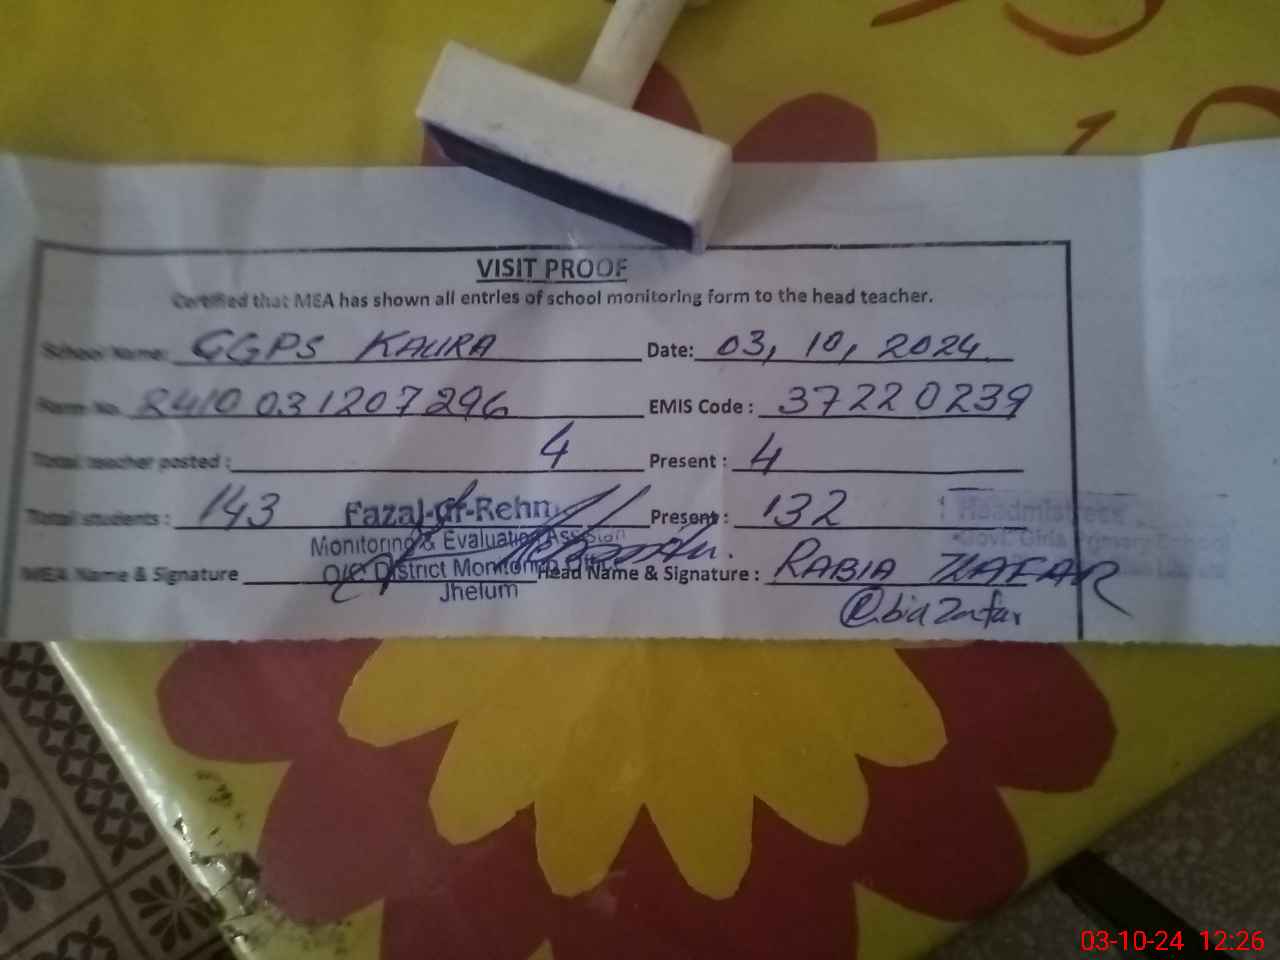 VISIT PROOF
Certified that MEA has shown all entries of school monitoring form to the head teacher.
School Name: GGPS KAURA Date: 03, 10, 2024
Form No. 2410031207296 EMIS Code : 37220239
Total teacher posted : 4 Present : 4
Total students : 143 Present : 132
Fazal-ur-Rehm
Monitoring & Evaluation Assistan
O/O District Monitoring Office
Jhelum
MEA Name & Signature Head Name & Signature : RABIA ZAFAR
Rabia Zafar
Headmistress
Govt. Girls Primary School
03-10-24 12:26